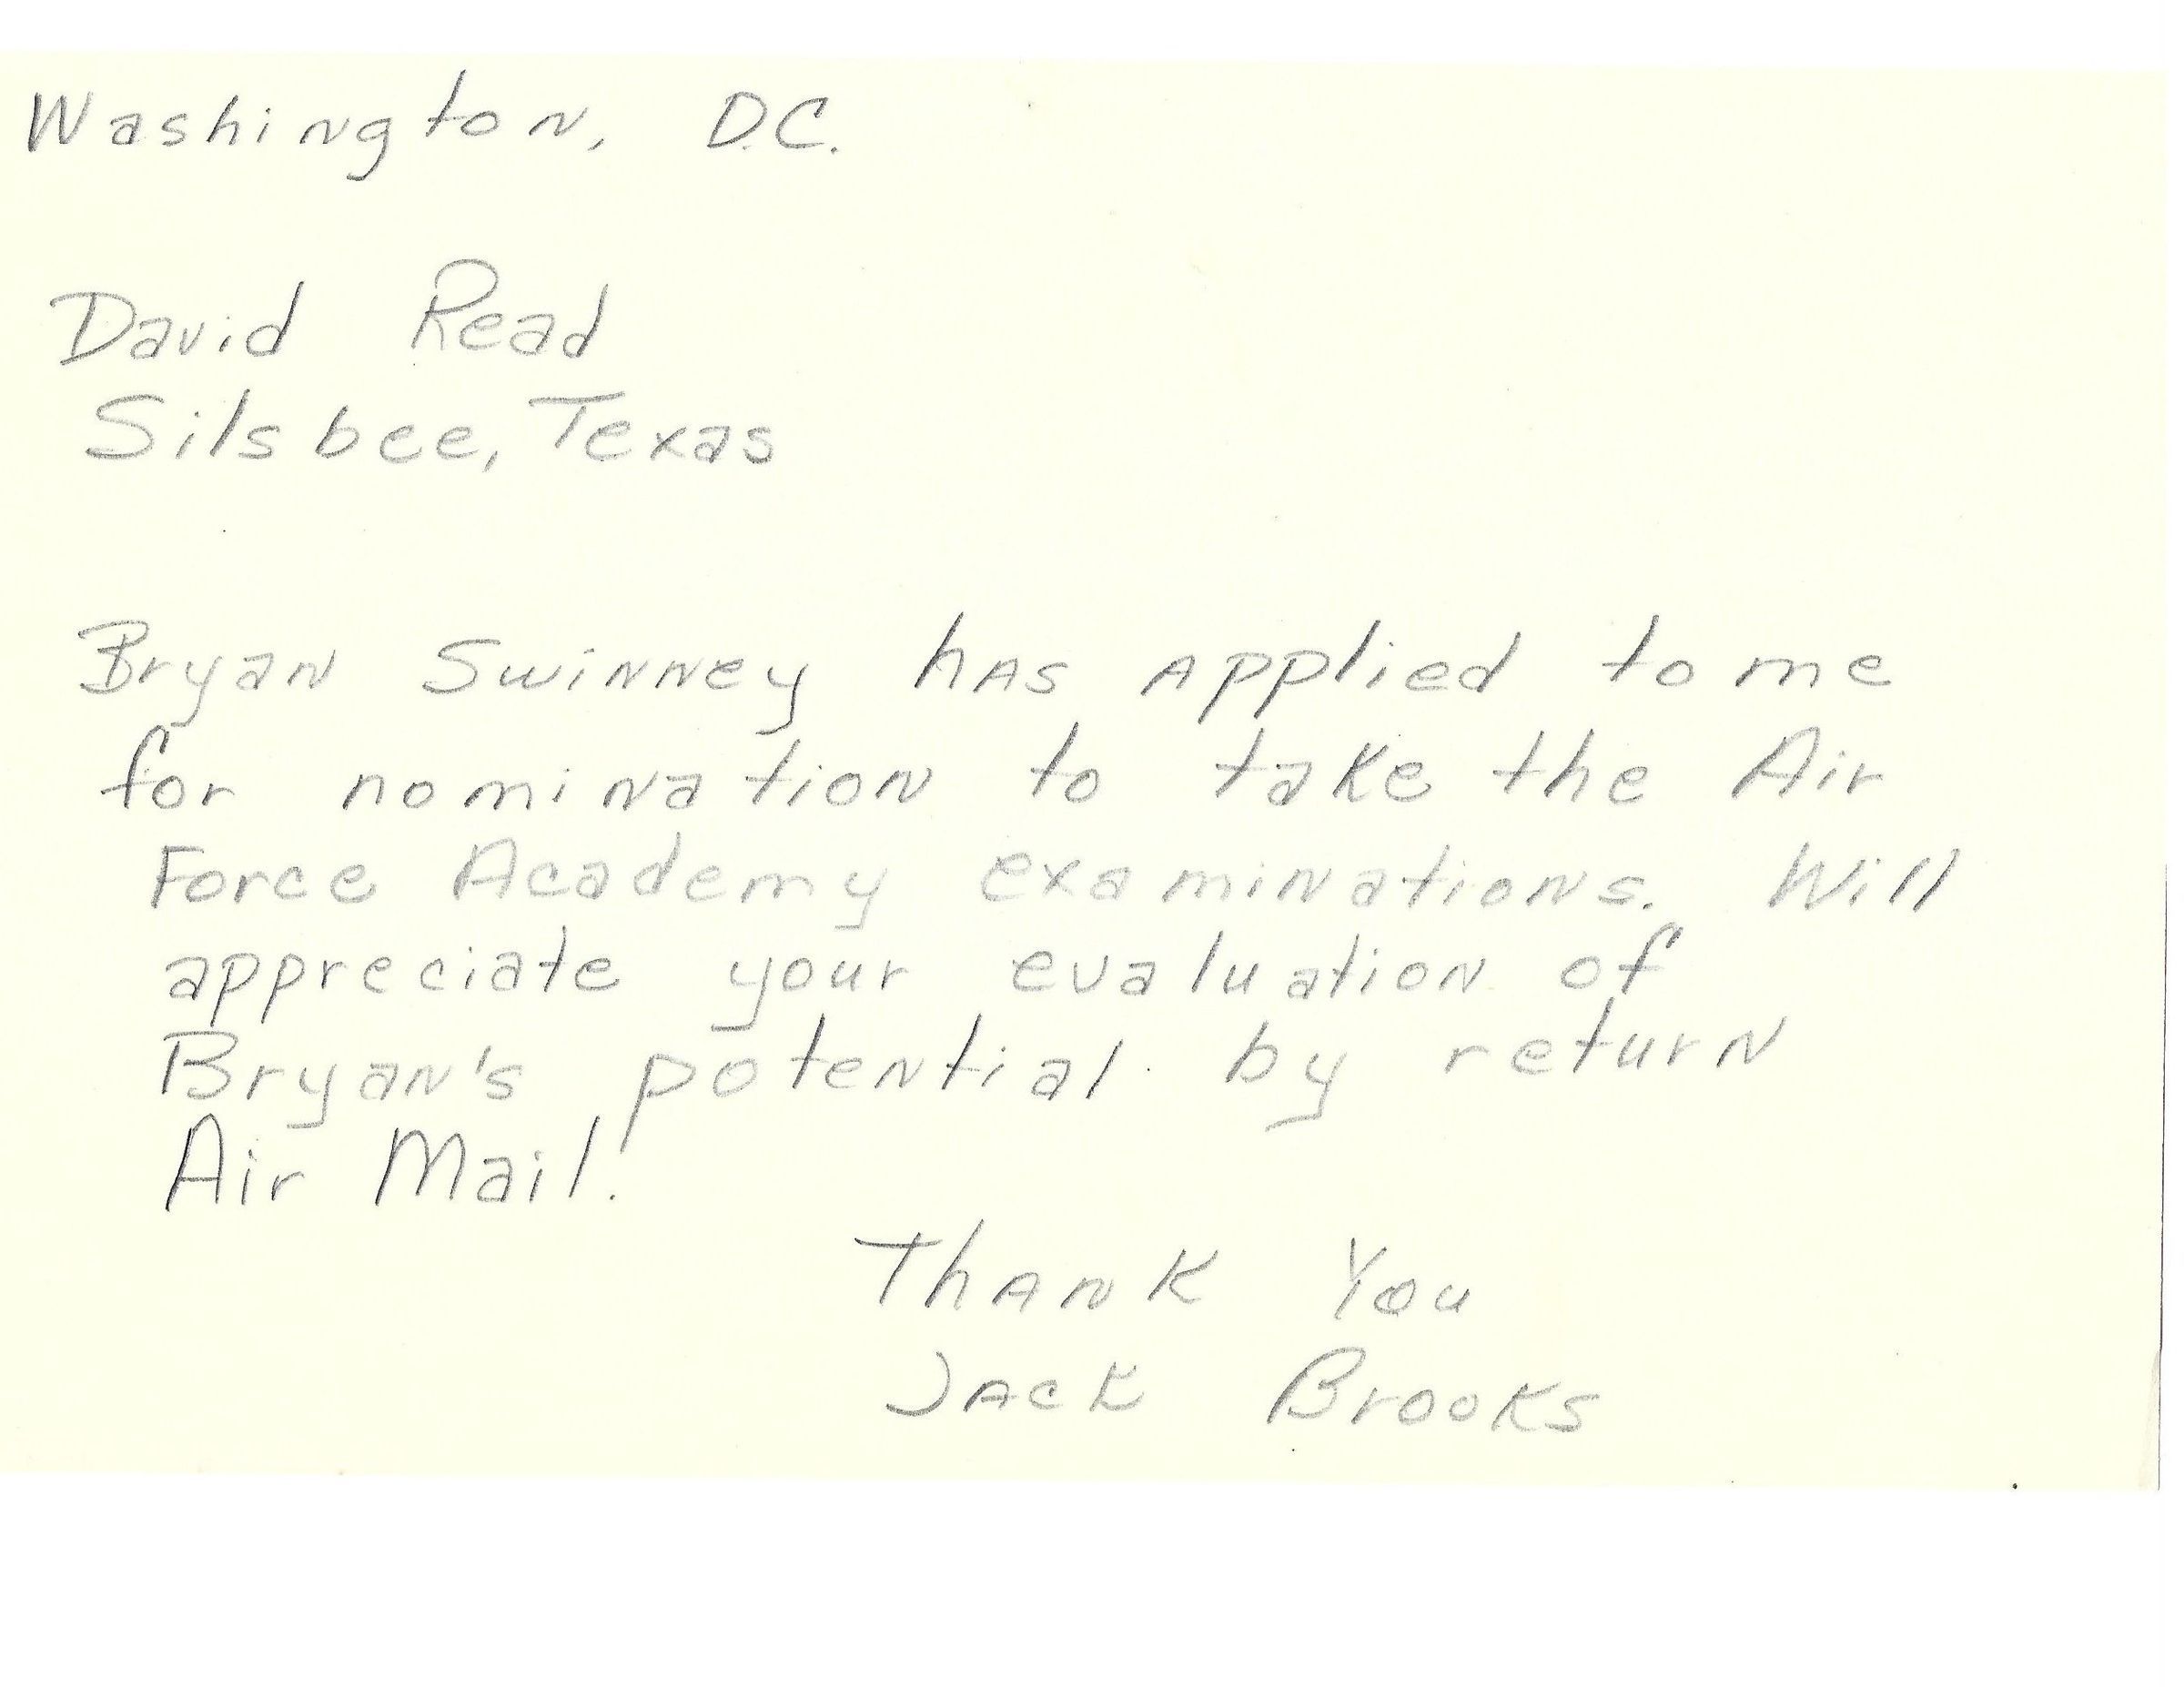 Washington, D.C.
David Read
Silsbee, Texas
Bryan Swinney has applied to me
for nomination to take the Air
Force Academy examinations. Will
appreciate your evaluation of
Bryan's potential by return
Air Mail.
Thank You
Jack Brooks